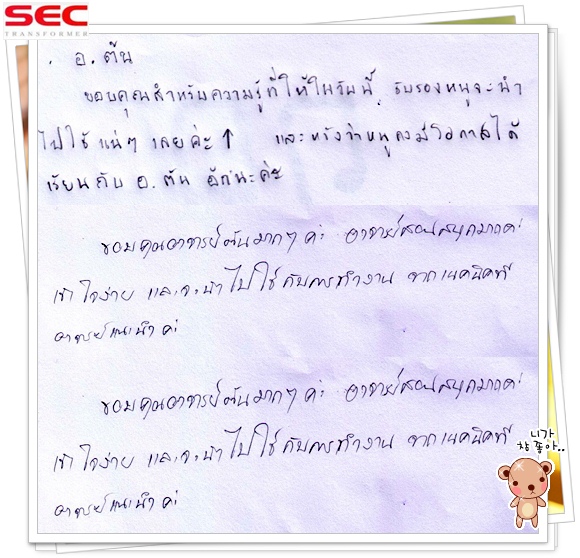 SEC
TRANSFORMER
. อ. ต้น
ขอบคุณสำหรับความรู้ที่ให้ในวันนี้ รับรองหนูจะนำ
ไปใช้ แน่ๆ เลยค่ะ ↑ และหวังว่าหนูคงมีโอกาสได้
เรียนกับ อ. ต้น อีกนะค่ะ
ขอบคุณอาจารย์ต้นมากๆ ค่ะ อาจารย์สอนสนุกมากค่ะ
เข้าใจง่าย และจะนำไปใช้กับการทำงาน จากเทคนิคที่
อาจารย์แนะนำค่ะ
ขอบคุณอาจารย์ต้นมากๆ ค่ะ อาจารย์สอนสนุกมากค่ะ
เข้าใจง่าย และจะนำไปใช้กับการทำงาน จากเทคนิคที่
อาจารย์แนะนำค่ะ
니가
참 좋아..